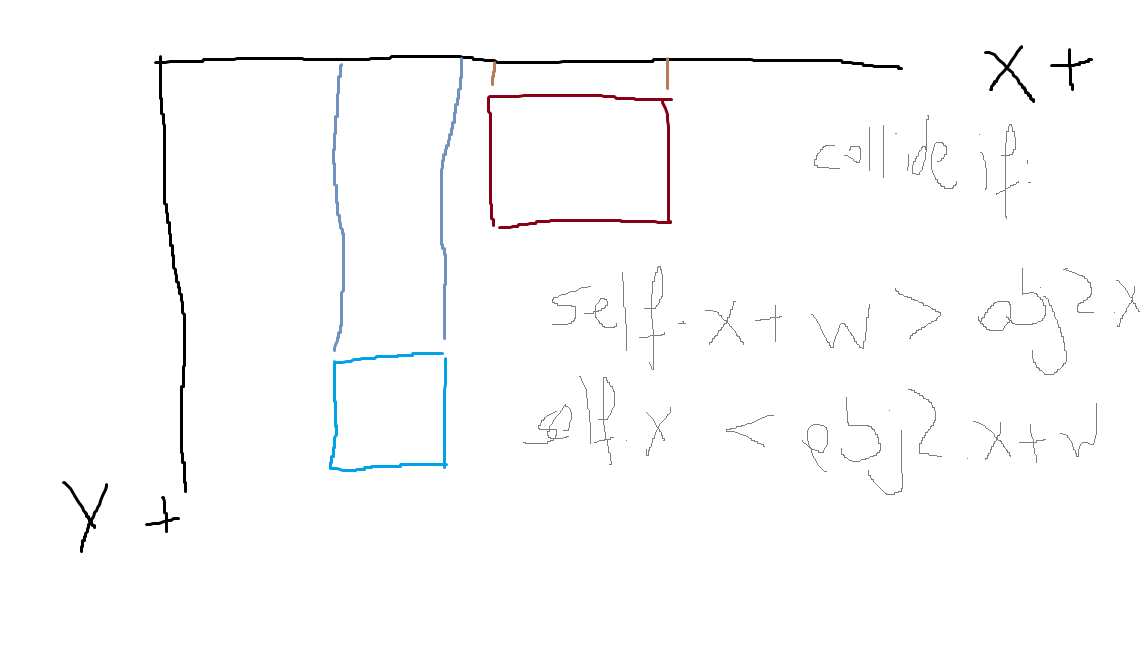 X +
collide if:
self.x + w > obj2.x
self.x < obj2.x + w
Y +